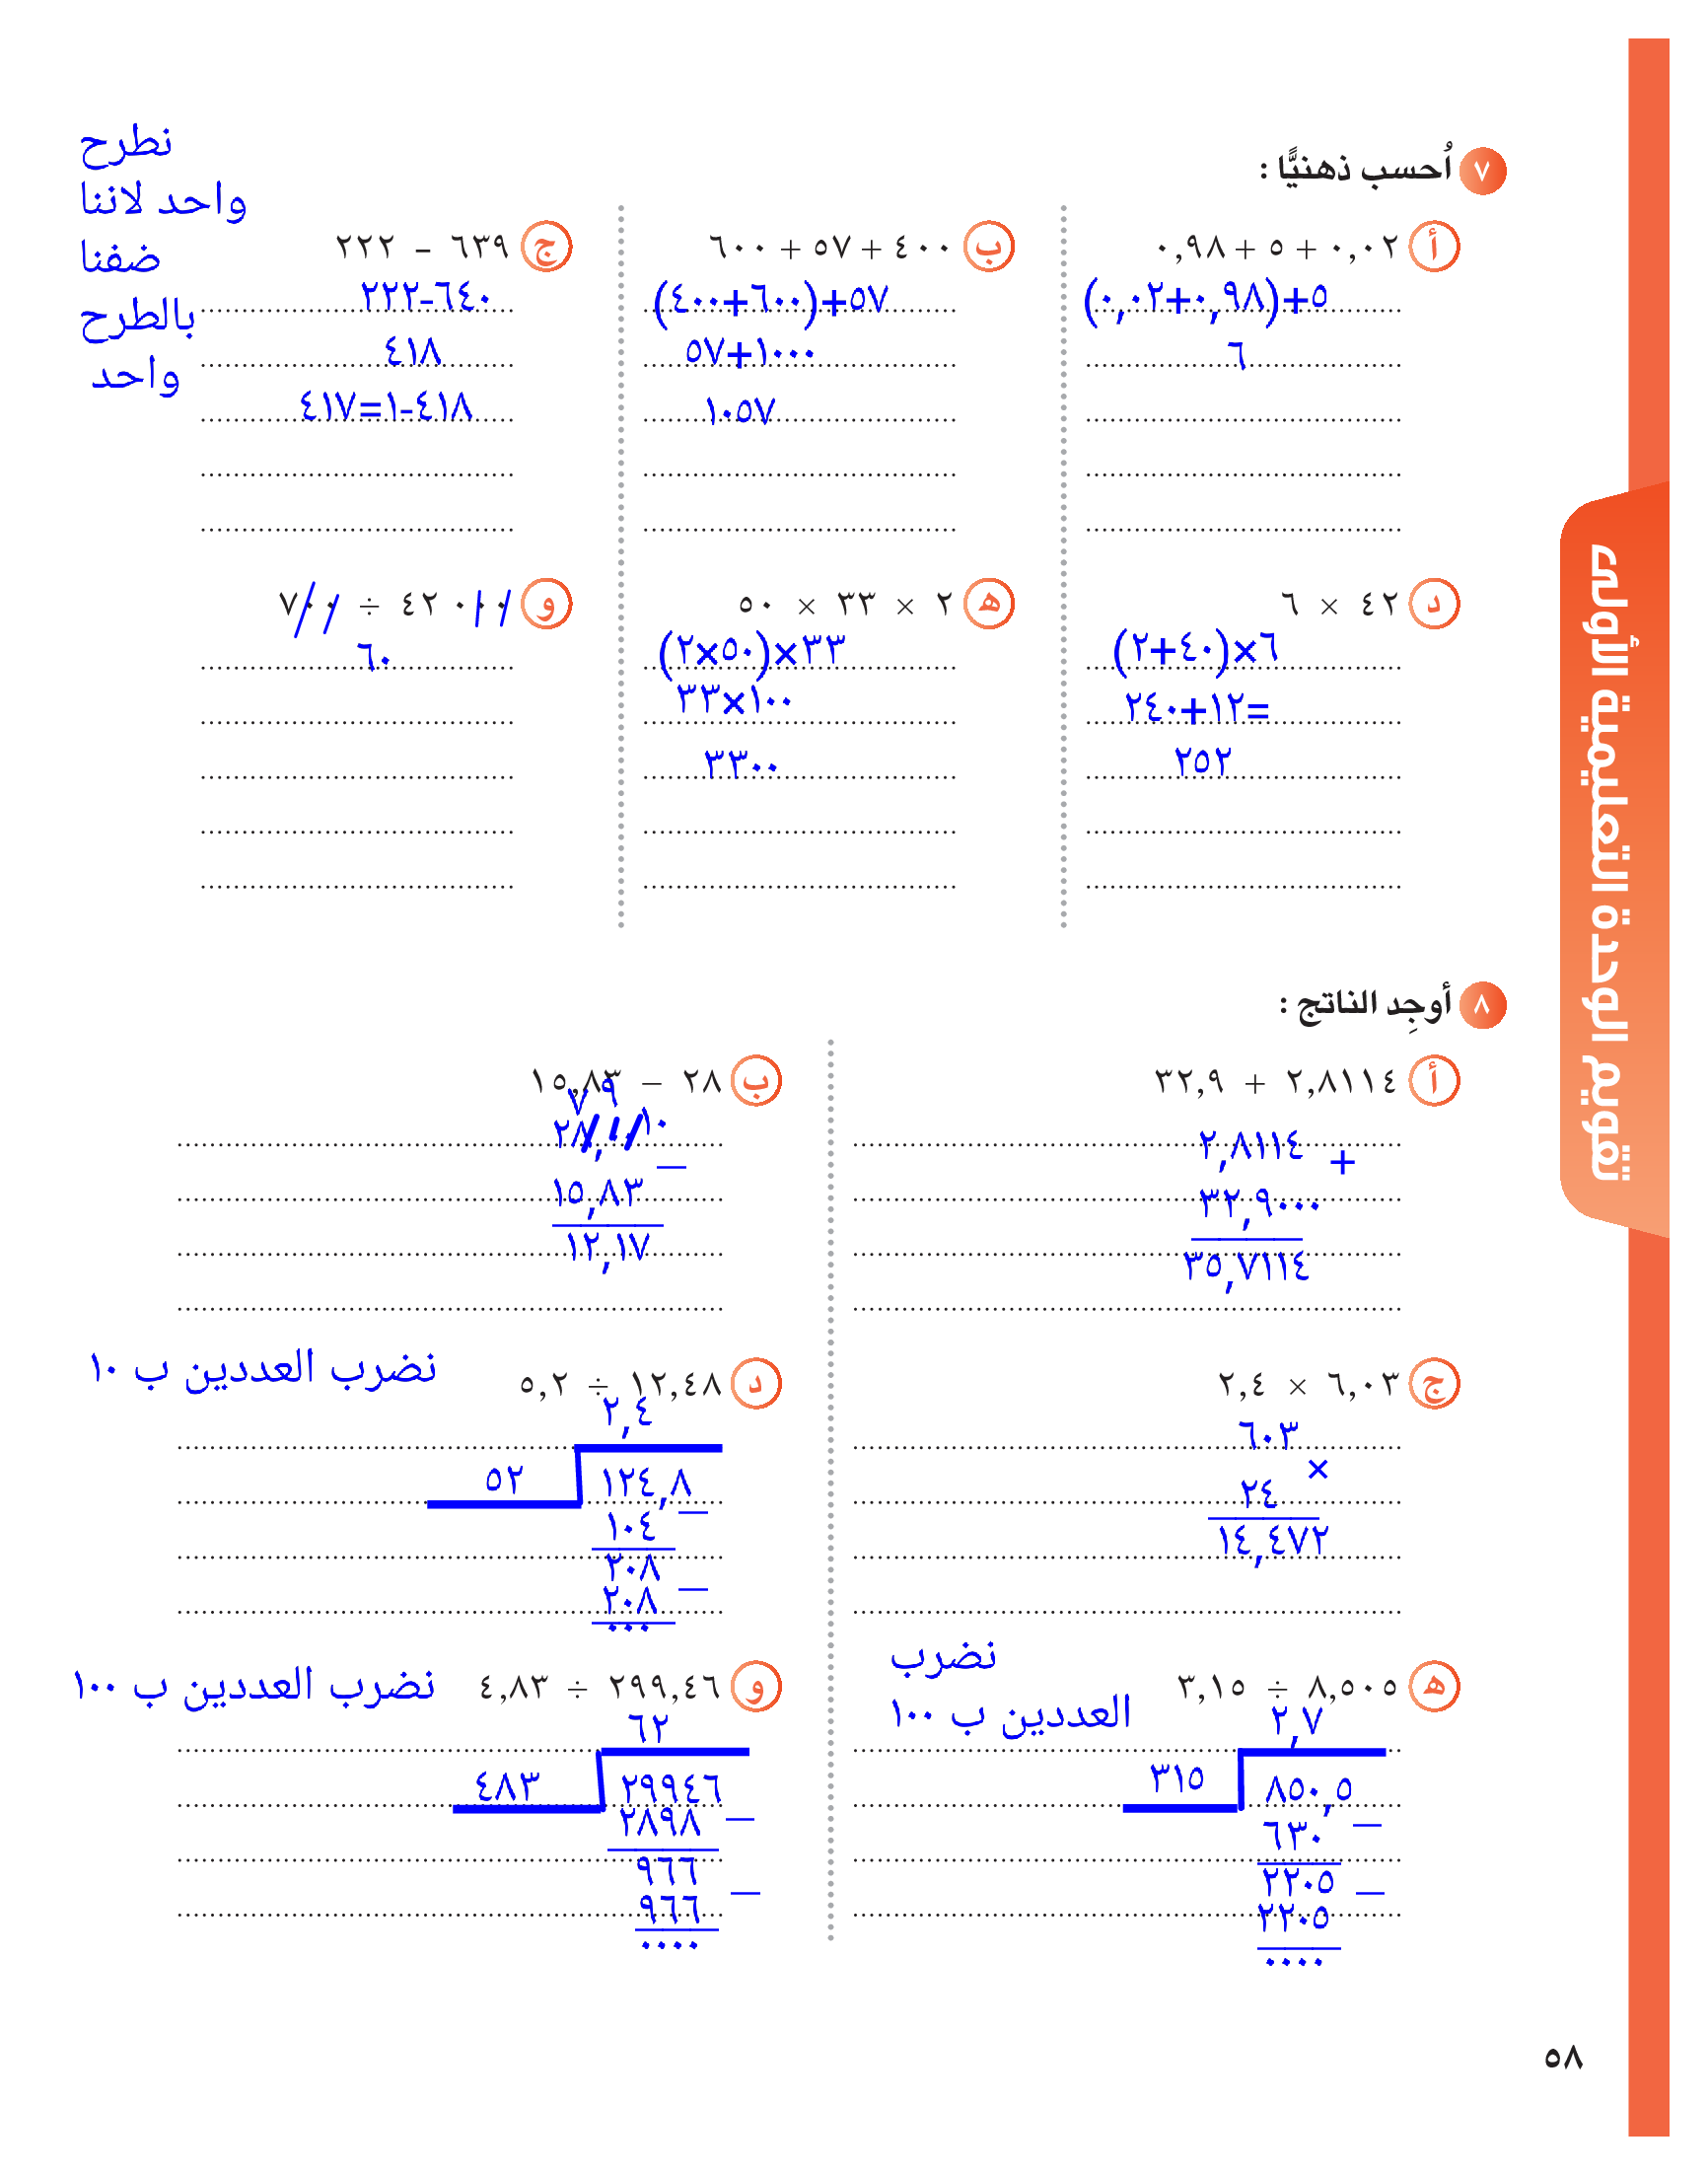 ٧ اُحسب ذهنيًّا :
أ ٠,٠٢ + ٥ + ٠,٩٨
(٠,٠٢+٠,٩٨)+٥
٦
ب ٤٠٠ + ٥٧ + ٦٠٠
(٤٠٠+٦٠٠)+٥٧
٥٧+١٠٠٠
١٠٥٧
ج ٦٣٩ - ٢٢٢
٢٢٢-٦٤٠
٤١٨
٤١٧=١-٤١٨
نطرح
واحد لاننا
ضفنا
بالطرح
واحد
د ٤٢ × ٦
(٢+٤٠)×٦
٢٤٠+١٢=
٢٥٢
ه ٢ × ٣٣ × ٥٠
(٢×٥٠)×٣٣
٣٣×١٠٠
٣٣٠٠
و ٤٢ ٠٠٠ ÷ ٧٠٠
٦٠
٨ أوجِد الناتج :
أ ٢,٨١١٤ + ٣٢,٩
٢,٨١١٤
+
٣٢,٩٠٠٠
٣٥,٧١١٤
ب ٢٨ – ١٥,٨٣
٧ ٩ ١٠
٢٨,٠٠
–
١٥,٨٣
١٢,١٧
ج ٦,٠٣ × ٢,٤
٦٠٣
×
٢٤
١٤,٤٧٢
د ١٢,٤٨ ÷ ٥,٢
نضرب العددين ب ١٠
٢,٤
٥٢ ١٢٤,٨
–
١٠٤
٢٠٨
–
٢٠٨
٠٠٠
ه ٨,٥٠٥ ÷ ٣,١٥
نضرب
العددين ب ١٠٠
٢,٧
٣١٥ ٨٥٠,٥
–
٦٣٠
٢٢٠٥
–
٢٢٠٥
٠٠٠٠
و ٢٩٩,٤٦ ÷ ٤,٨٣
نضرب العددين ب ١٠٠
٦٢
٤٨٣ ٢٩٩٤٦
–
٢٨٩٨
٩٦٦
–
٩٦٦
٠٠٠٠
تقويم الوحدة التعليمية الأولى
٥٨